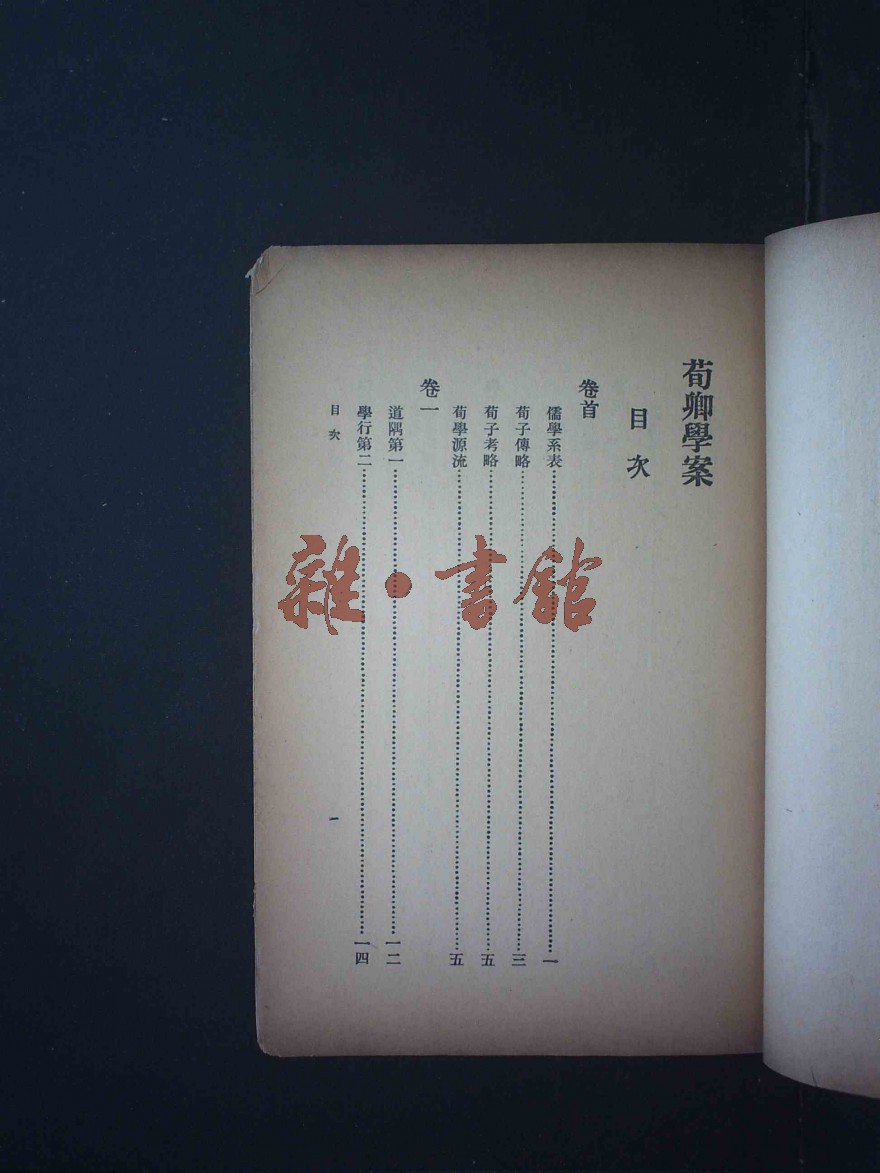 荀卿學案
目次
卷首
儒學系表……一
荀子傳略……三
荀子考略……五
荀學源流……五
卷一
道隅第一……一二
學行第二……一四
目次
一
雜·書館